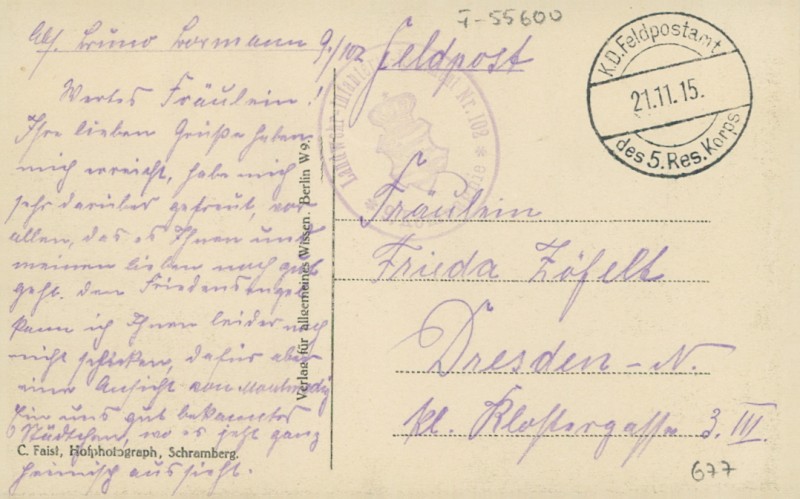 F-55600
Abs. Bruno Bormann 9./102
Feldpost
Wertes Fräulein!
Ihre lieben Grüße haben
mich erreicht, habe mich
sehr darüber gefreut, vor
allen, das es Ihnen und
meinen lieben noch gut
geht. Den Friedensengel
kann ich Ihnen leider noch
nicht schicken, dafür aber
eine Ansicht von Montmedy
Ein uns gut bekanntes
Städtchen, wo es jetzt ganz
heimisch aussieht.
C. Faist, Hofphotograph, Schramberg.
Verlag für allgemeines Wissen. Berlin W 9.
Landwehr-Infanterie Nr. 102
K.D. Feldpostamt
21.11.15.
des 5. Res. Korps
Fräulein
Frieda Zöfelt
Dresden-N.
kl. Klostergasse 3. III.
677